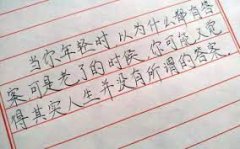 当你年轻时，以为什么都有答
案，可是老了的时候，你可能又觉
得其实人生并没有所谓的答案。